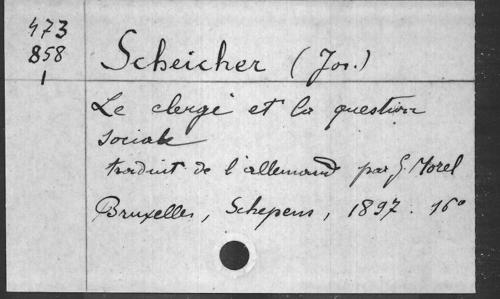 473
858
1
Scheicher (Jos.)
Le clergé et la question
sociale
traduit de l'allemand par G. Morel
Bruxelles, Schepens, 1897. 16°